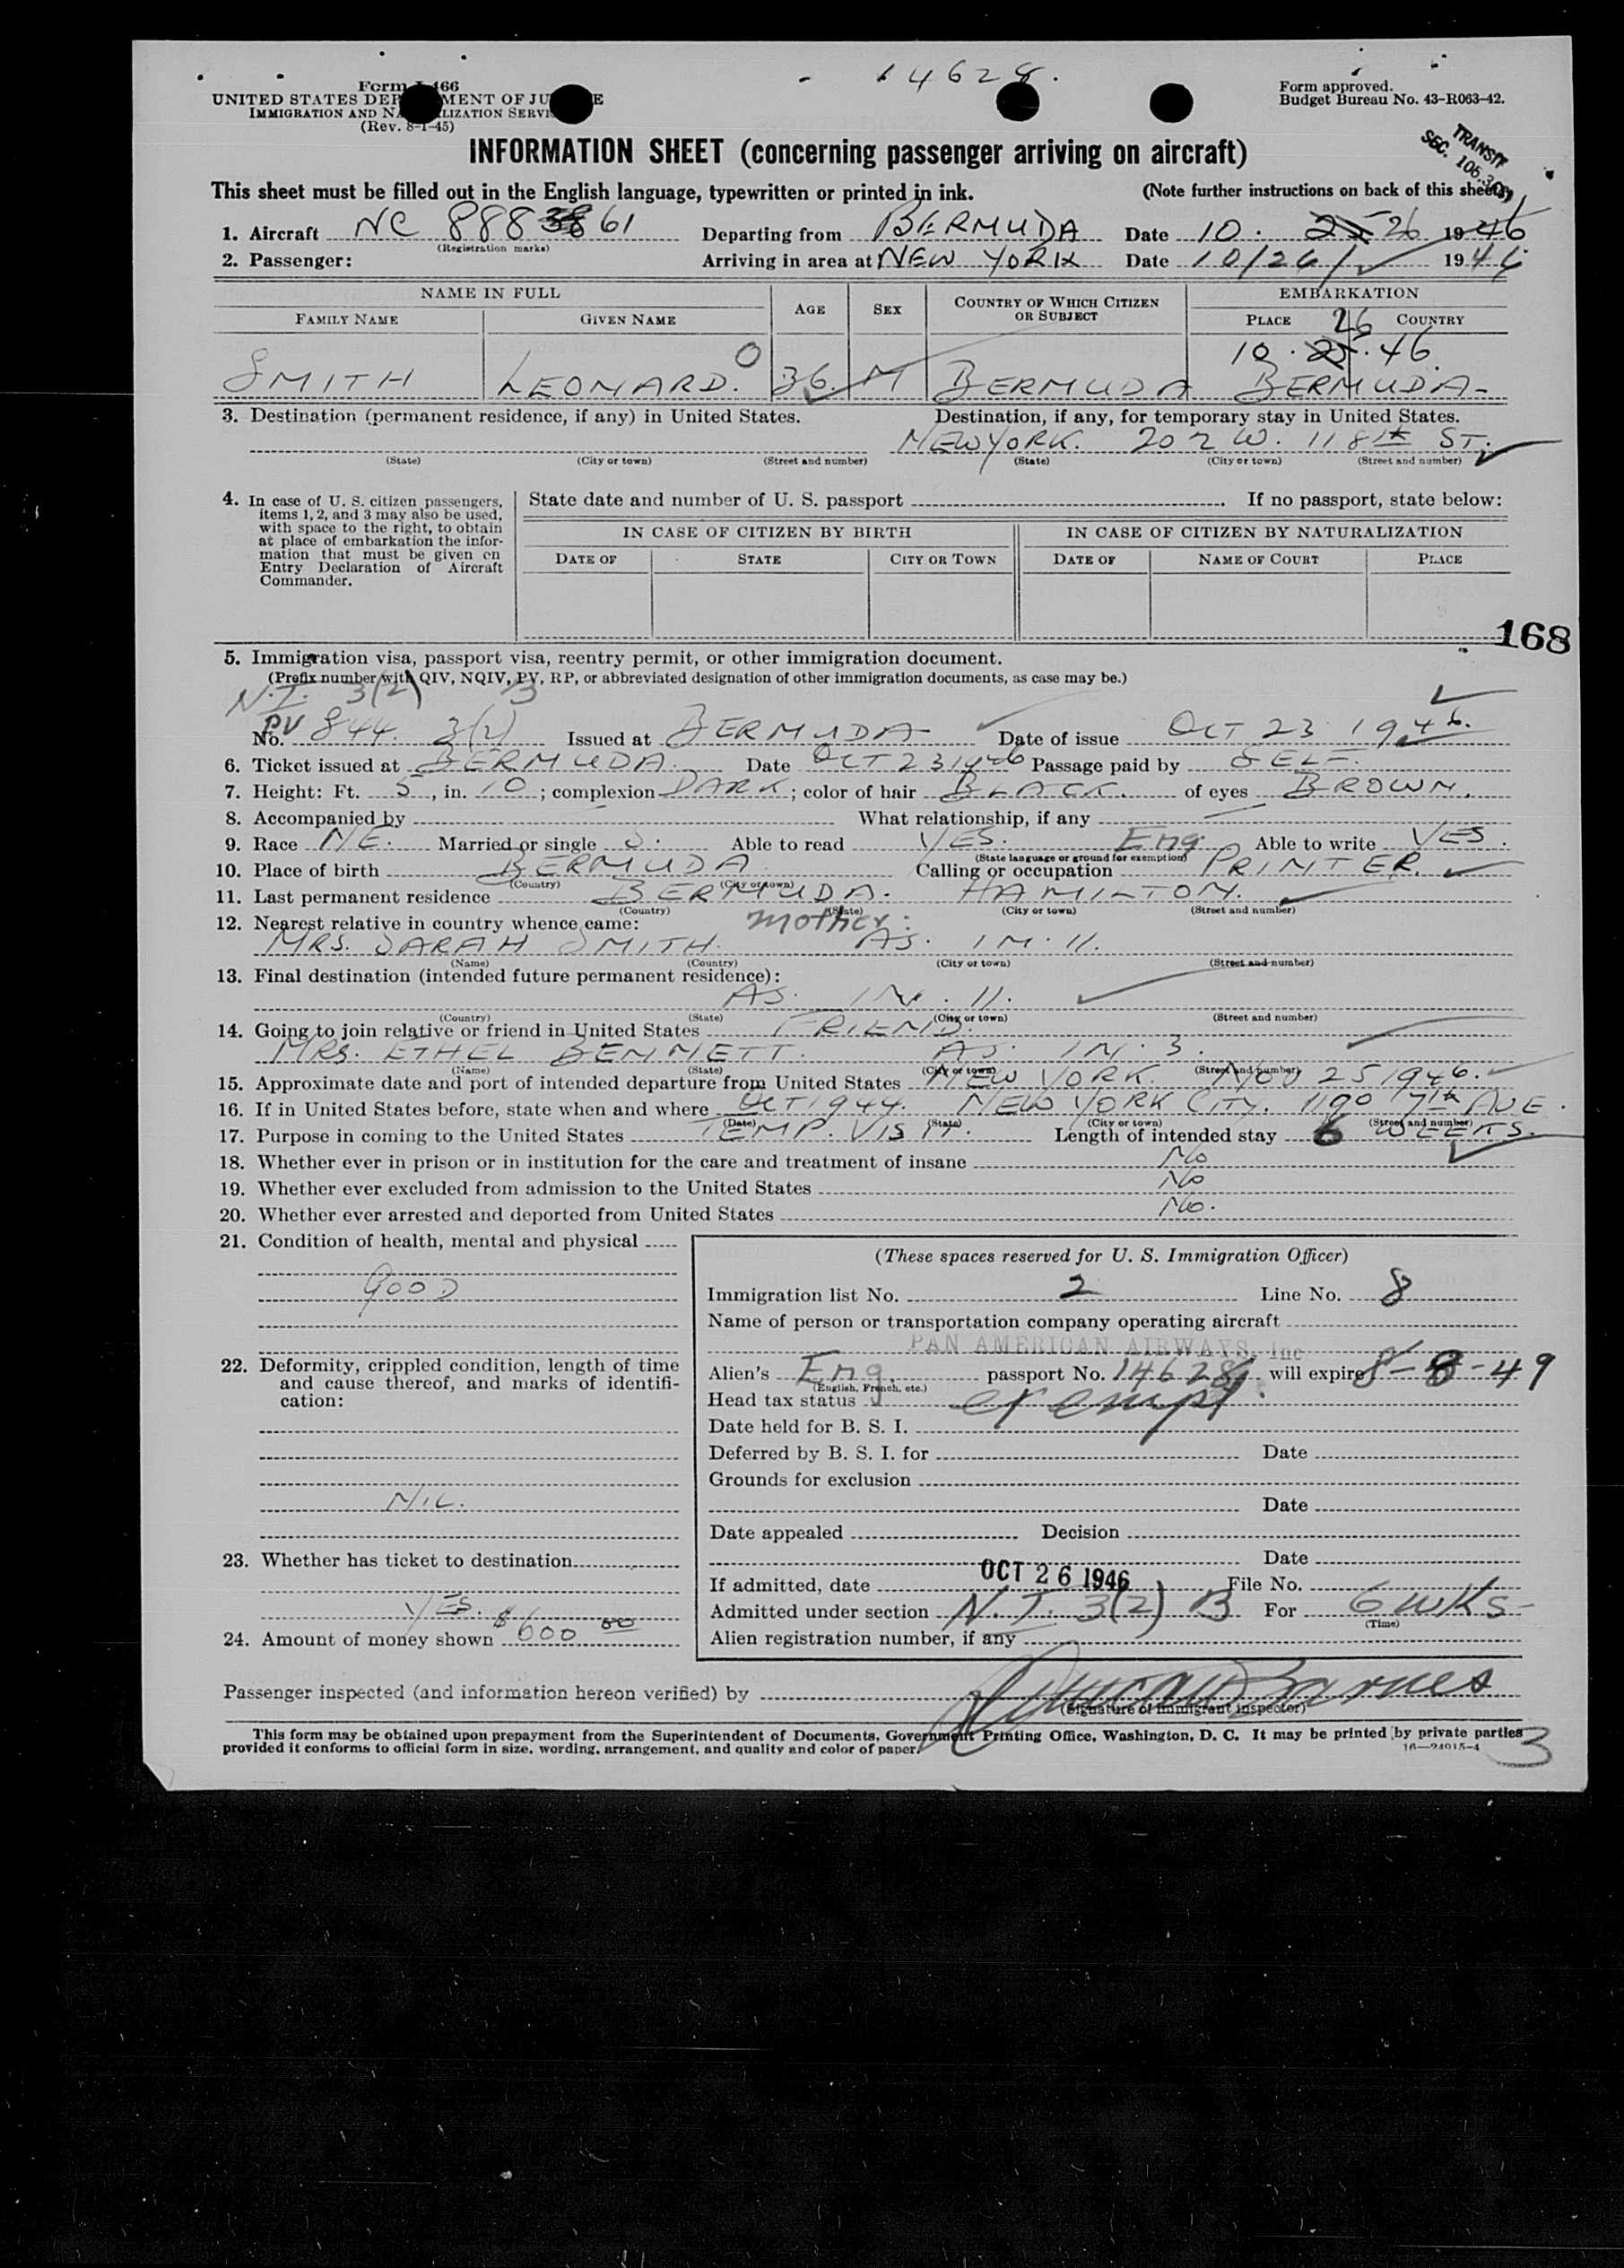 14628.
Form I-466
UNITED STATES DEPARTMENT OF JUSTICE
IMMIGRATION AND NATURALIZATION SERVICE
(Rev. 8-1-45)
Form approved.
Budget Bureau No. 43-R063-42.
TRANSIT
SEC. 106.3
INFORMATION SHEET (concerning passenger arriving on aircraft)
This sheet must be filled out in the English language, typewritten or printed in ink. (Note further instructions on back of this sheet)
1. Aircraft NC 88861 Departing from BERMUDA Date 10. 25 26 1946
(Registration marks)
2. Passenger: Arriving in area at NEW YORK Date 10/26/ 1946
NAME IN FULL AGE SEX COUNTRY OF WHICH CITIZEN OR SUBJECT EMBARKATION
FAMILY NAME GIVEN NAME PLACE COUNTRY
26
O 10. 25. 46
SMITH LEONARD. 36. M BERMUDA BERMUDA-
3. Destination (permanent residence, if any) in United States. Destination, if any, for temporary stay in United States.
NEW YORK. 202 W. 118th ST.
(State) (City or town) (Street and number) (State) (City or town) (Street and number)
4. In case of U. S. citizen passengers, items 1, 2, and 3 may also be used, with space to the right, to obtain at place of embarkation the information that must be given on Entry Declaration of Aircraft Commander.
State date and number of U. S. passport . If no passport, state below:
IN CASE OF CITIZEN BY BIRTH IN CASE OF CITIZEN BY NATURALIZATION
DATE OF STATE CITY OR TOWN DATE OF NAME OF COURT PLACE
168
5. Immigration visa, passport visa, reentry permit, or other immigration document.
(Prefix number with QIV, NQIV, PV, RP, or abbreviated designation of other immigration documents, as case may be.)
N.I. 3(2) B
PV
No. 844. 3(2) Issued at BERMUDA Date of issue OCT 23 1946.
6. Ticket issued at BERMUDA. Date OCT 23 1946 Passage paid by SELF.
7. Height: Ft. 5, in. 10; complexion DARK; color of hair BLACK. of eyes BROWN.
8. Accompanied by What relationship, if any
9. Race NE. Married or single S. Able to read YES. Eng Able to write YES.
(State language or ground for exemption)
10. Place of birth BERMUDA Calling or occupation PRINTER.
(Country) (City or town)
11. Last permanent residence BERMUDA. HAMILTON.
(Country) (State) (City or town) (Street and number)
12. Nearest relative in country whence came: mother:
MRS. SARAH SMITH. AS. IN. 11.
(Name) (Country) (City or town) (Street and number)
13. Final destination (intended future permanent residence):
AS. IN. 11.
(Country) (State) (City or town) (Street and number)
14. Going to join relative or friend in United States FRIEND.
MRS. ETHEL BENNETT. AS. IN. 3.
(Name) (State) (City or town) (Street and number)
15. Approximate date and port of intended departure from United States NEW YORK. NOV 25 1946.
16. If in United States before, state when and where OCT 1944. NEW YORK CITY. 1190 7th AVE.
(Date) (State) (City or town) (Street and number)
17. Purpose in coming to the United States TEMP. VISIT. Length of intended stay 6 WEEKS.
18. Whether ever in prison or in institution for the care and treatment of insane No
19. Whether ever excluded from admission to the United States No
20. Whether ever arrested and deported from United States No.
21. Condition of health, mental and physical
GOOD
22. Deformity, crippled condition, length of time and cause thereof, and marks of identification:
NIL.
23. Whether has ticket to destination
YES.
24. Amount of money shown $600 00
(These spaces reserved for U. S. Immigration Officer)
Immigration list No. 2 Line No. 8
Name of person or transportation company operating aircraft
PAN AMERICAN AIRWAYS, Inc
Alien's Eng. passport No. 14628 will expire 8-8-49
(English, French, etc.)
Head tax status exempt.
Date held for B. S. I.
Deferred by B. S. I. for Date
Grounds for exclusion
Date
Date appealed Decision
Date
If admitted, date OCT 26 1946 File No.
Admitted under section N.I. 3(2) B For 6 wks-
(Time)
Alien registration number, if any
Passenger inspected (and information hereon verified) by Barnes
(Signature of Immigrant Inspector)
This form may be obtained upon prepayment from the Superintendent of Documents, Government Printing Office, Washington, D. C. It may be printed by private parties
provided it conforms to official form in size, wording, arrangement, and quality and color of paper.
16—24015-4
3